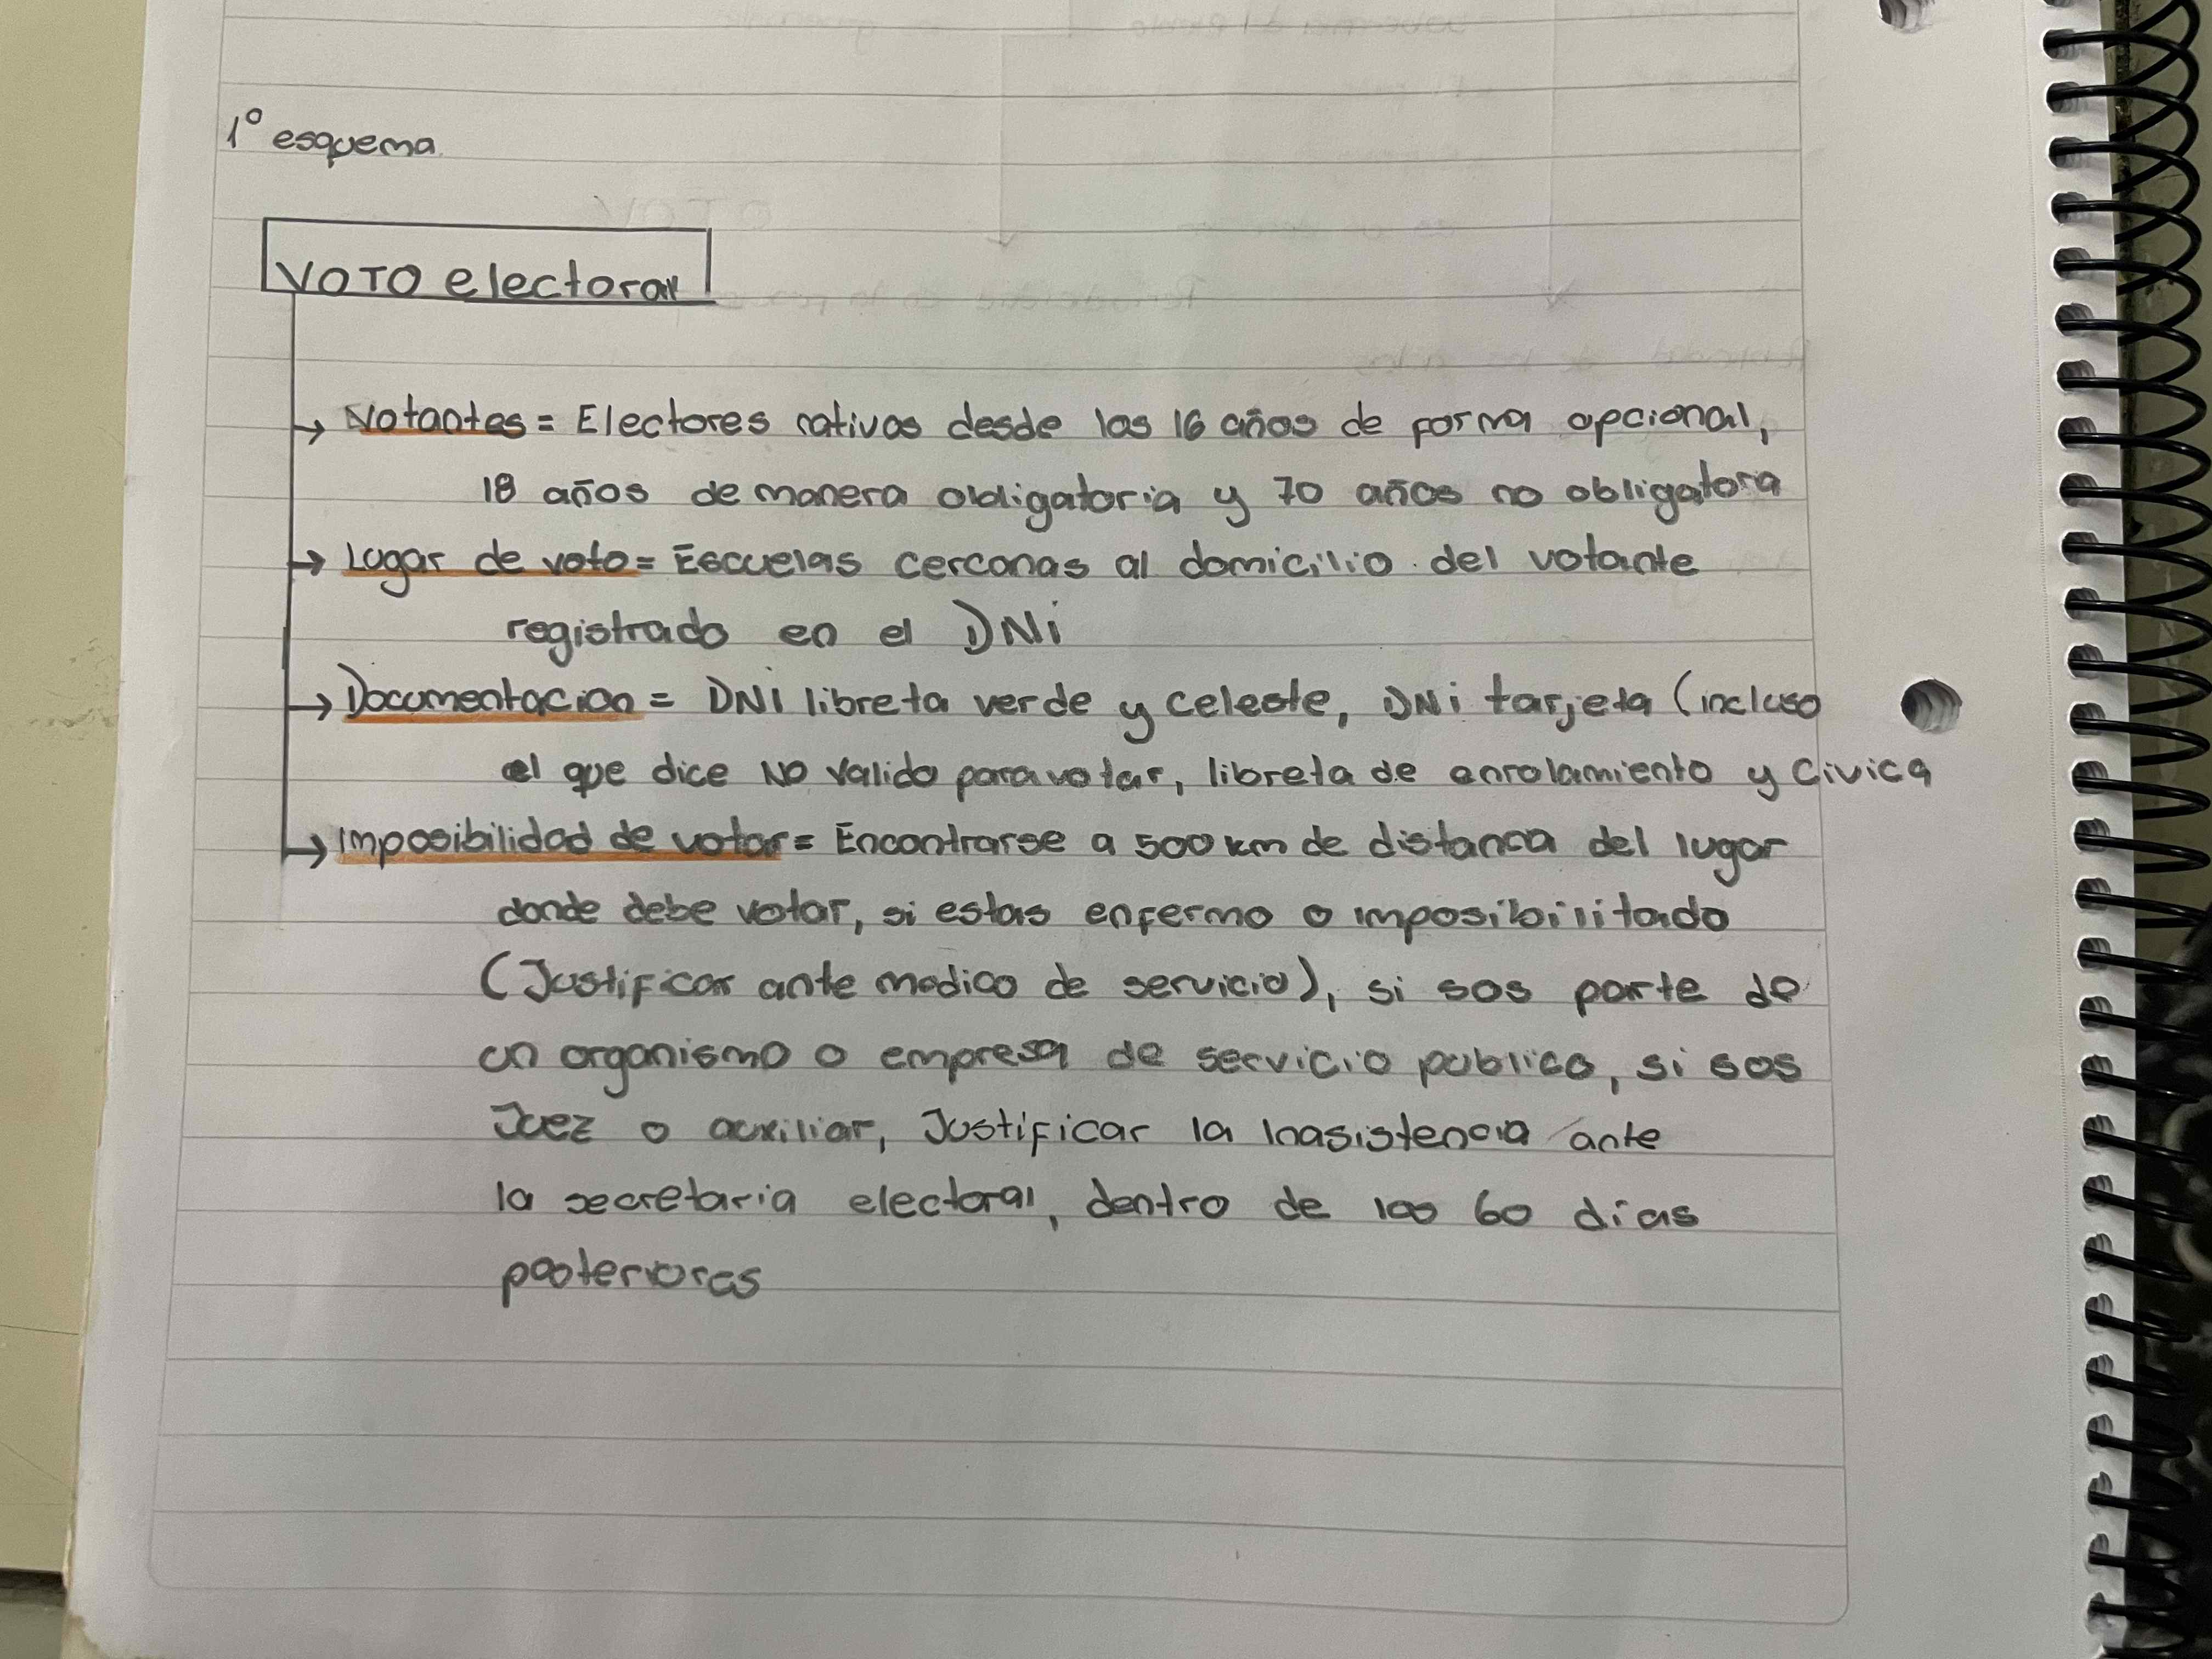 1º esquema.
VOTO electoral
→ Votantes = Electores nativos desde los 16 años de forma opcional,
18 años de manera obligatoria y 70 años no obligatora
→ Lugar de voto = Escuelas cercanas al domicilio del votante
registrado en el DNi
→ Documentacion = DNI libreta verde y celeste, DNi tarjeta (incluso
el que dice NO valido para votar, libreta de enrolamiento y Civica
→ Imposibilidad de votar = Encontrarse a 500 km de distanca del lugar
donde debe votar, si estas enfermo o imposibilitado
(Justificar ante medico de servicio), si sos parte de
un organismo o empresa de servicio publico, si sos
Juez o auxiliar, Justificar la Inasistencia ante
la secretaria electoral, dentro de los 60 días
posteriores